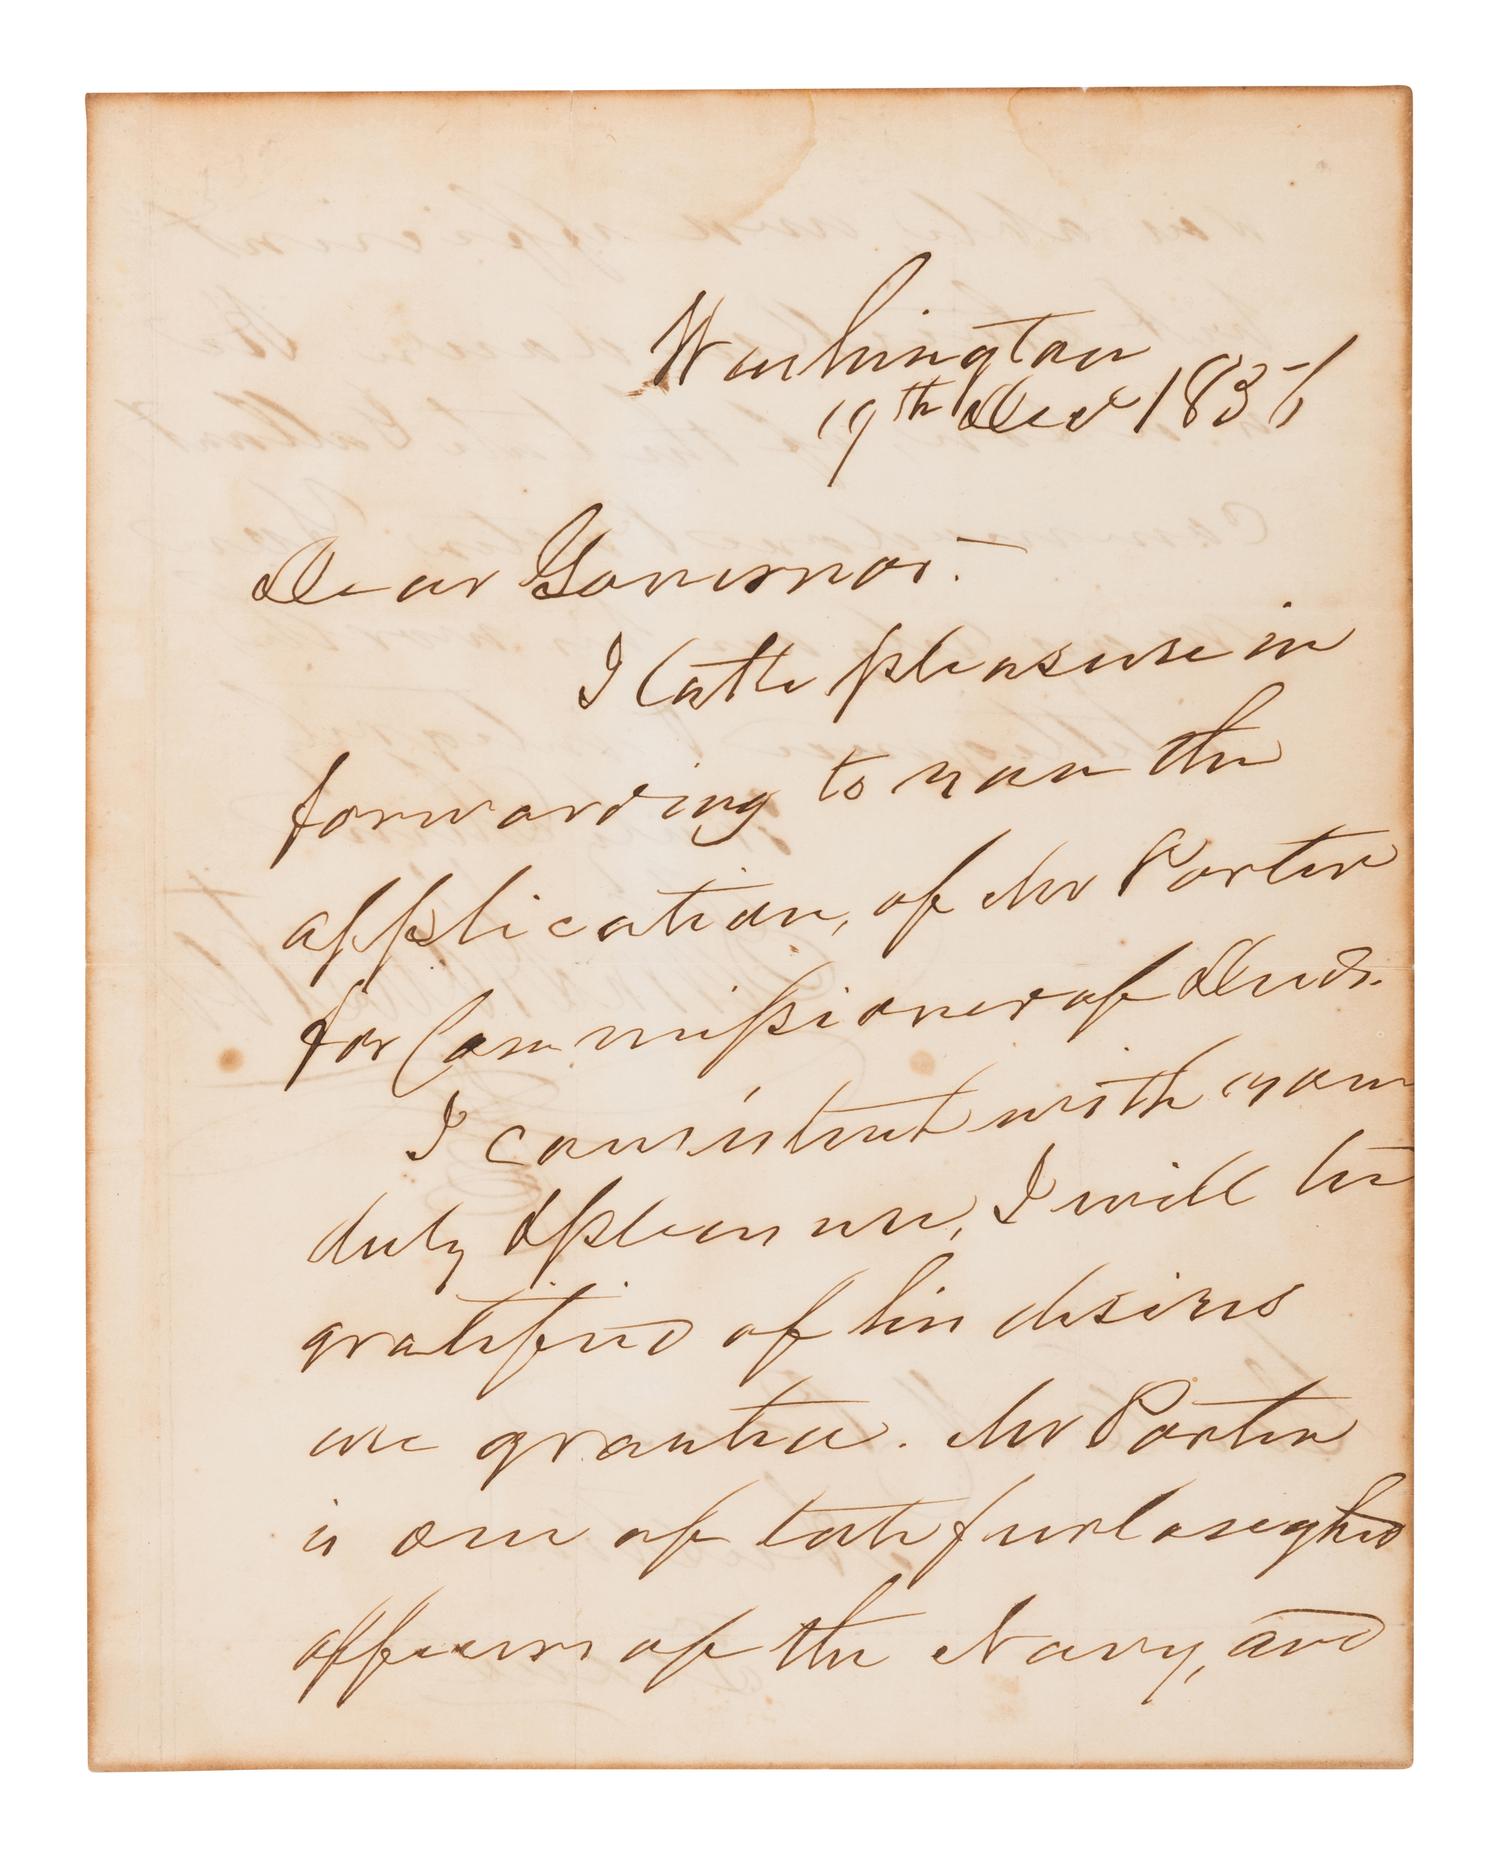 Washington
19th Decr
Dear Governor.
I take pleasure in
forwarding to you the
application, of Mr Porter
for Commissioner of Deeds.
I consistent with your
duty & pleasure, I will be
gratified if his desires
are granted. Mr Porter
is one of late furloughed
officers of the Navy, and